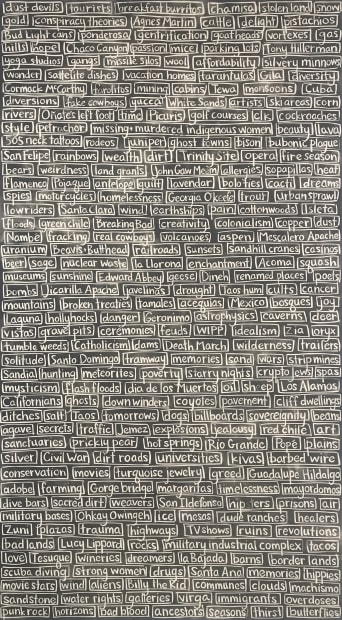 dust devils tourists breakfast burritos chamisa stolen land snow
gold conspiracy theories Agnes Martin cattle delight pistachios
Bud Light cans ponderosa gentrification goatheads vortexes gas
hills hope Chaco Canyon passion mice parking lots Tony Hillerman
yoga studios gangs missile silos wool affordability silvery minnows
wonder satellite dishes vacation homes tarantulas Gila diversity
Cormack McCarthy farolitos mining cabins Tewa monsoons Cuba
diversions fake cowboys yucca White Sands artists ski areas corn
rivers Oñate's left foot time Picuris golf courses clic cockroaches
style petrichor missing + murdered indigenous women beauty lava
505 neck tattoos rodeos juniper ghost towns bison bubonic plague
San Felipe rainbows wealth dirt Trinity Site opera fire season
bears weirdness land grants John Gaw Meem allergies sopapillas heat
flamenco Pojoaque antelope guilt lavender bolo ties cacti dreams
spies motorcycles homelessness Georgia O'Keefe trout urban sprawl
lowriders Santa Clara wind earthships pain cottonwoods Isleta
floods green chile Breaking Bad creativity colonialism copper dust
Nambé fracking real cowboys volcanoes aspen Mescalero Apache
uranium Beavis + Butthead railroads sunsets Sandhill cranes casinos
beer sage nuclear waste la Llorona enchantment Acoma squash
museums sunshine Edward Abbey geese Dineh renamed places poets
bombs Jicarilla Apache javelinas drought Taos hum cults cancer
mountains broken treaties tamales acequias Mexico bosques joy
Laguna hollyhocks danger Geronimo astrophysics caverns deer
vistas gravel pits ceremonies feuds WIPP idealism Zia oryx
tumble weeds Catholicism dams Death March wilderness trailers
solitude Santo Domingo tramway memories sand wars strip mines
Sandia hunting meteorites poverty starry nights crypto jews spas
mysticism flash floods dia de los Muertos oil sheep Los Alamos
Californians ghosts down winders coyotes pavement cliff dwellings
ditches salt Taos tomorrows dogs billboards sovereignity beans
agave secrets traffic Jemez explosions jealousy red chile art
sanctuaries prickly pear hot springs Rio Grande Popé plains
silver Civil War dirt roads universities kivas barbed wire
conservation movies turquoise jewelry greed Guadalupe Hidalgo
adobe farming Gorge bridge margaritas timelessness mayordomos
dive bars sacred dirt weavers San Ildefonso prisons air
military bases Ohkay Owingeh ice mesas dude ranches healers
Zuni plazas trauma highways TV shows ruins revolutions
bad lands Lucy Lippard rocks military industrial complex tacos
love Tesuque wineries dreamers la Bajada barns border lands
scuba diving strong women drugs Santa Ana memories hippies
movie stars wind aliens Billy the Kid communes clouds machismo
sandstone water rights galleries virga immigrants overdoses
punk rock horizons bad blood ancestors seasons thirst butterflies